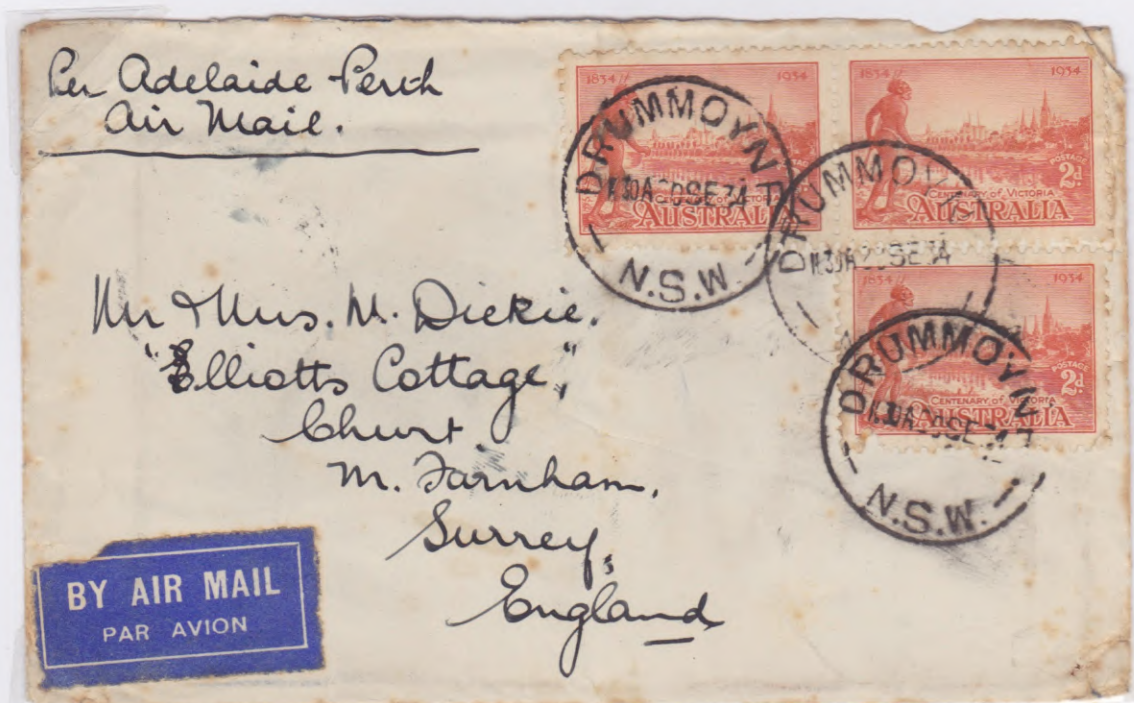 Per Adelaide-Perth
Air Mail.
1834 1934
CENTENARY OF VICTORIA
AUSTRALIA
1834 1934
POSTAGE
2d
CENTENARY OF VICTORIA
AUSTRALIA
1834 1934
POSTAGE
2d
CENTENARY OF VICTORIA
AUSTRALIA
DRUMMOYNE
11.30A 20SE34
N.S.W.
DRUMMOYNE
11.30A 20SE34
DRUMMOYNE
11.30A 20SE34
N.S.W.
Mr & Mrs. M. Dickie.
"Elliotts Cottage,"
Churt
Nr. Farnham,
Surrey,
England
BY AIR MAIL
PAR AVION